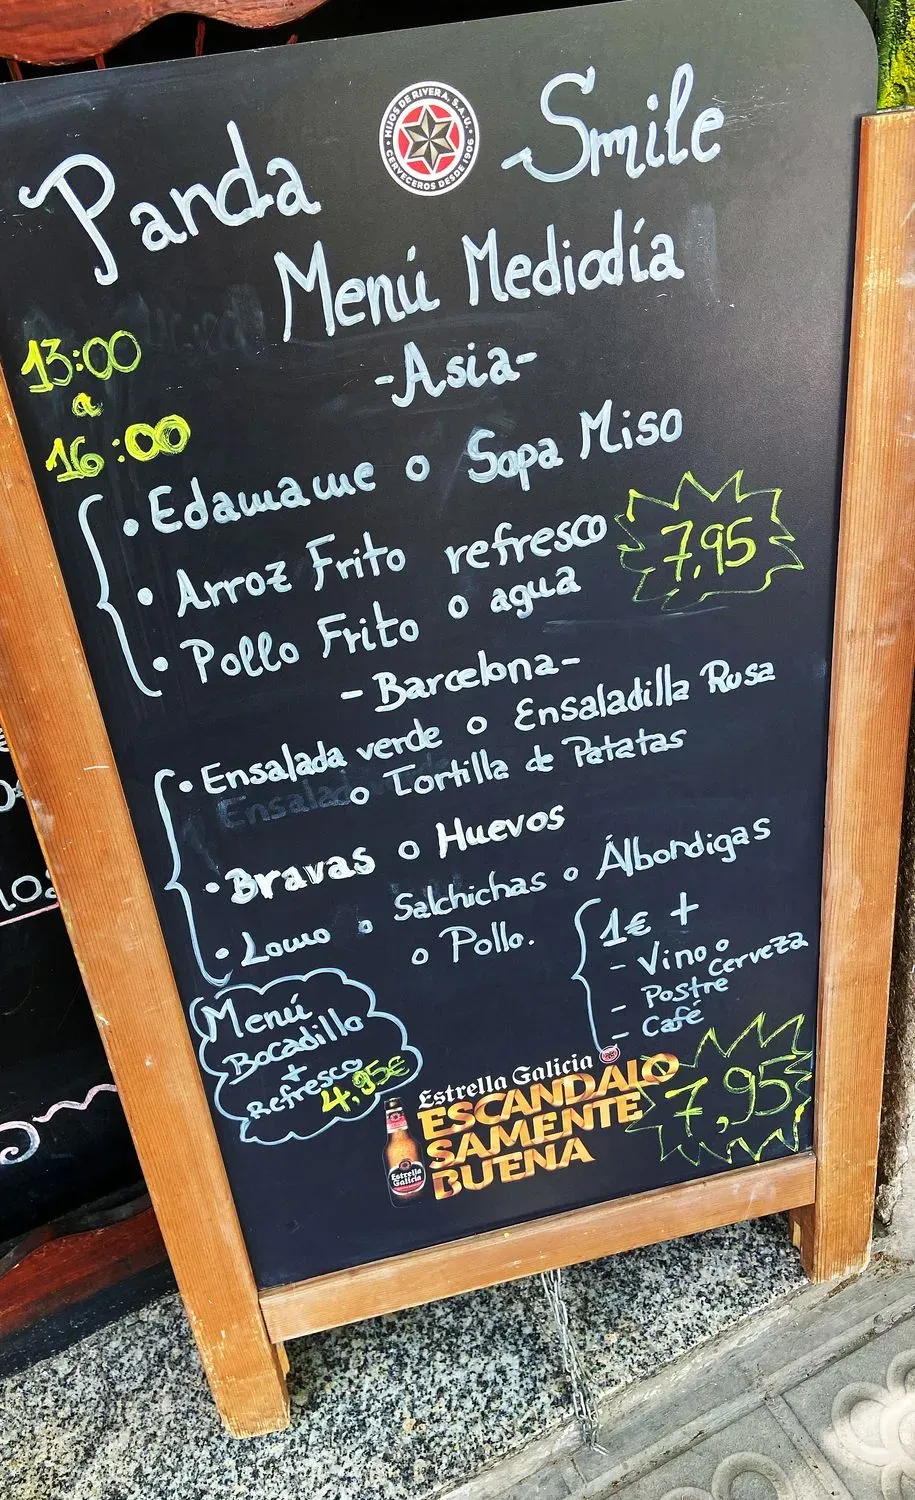 Panda Smile
HIJOS DE RIVERA, S.A.U.
CERVECEROS DESDE 1906
Menú Mediodía
13:00
a
16:00
-Asia-
• Edamame o Sopa Miso
• Arroz Frito refresco
• Pollo Frito o agua
7,95
-Barcelona-
• Ensalada verde o Ensaladilla Rusa
o Tortilla de Patatas
• Bravas o Huevos
• Lomo o Salchichas o Álbondigas
o Pollo.
1€ +
- Vino o Cerveza
- Postre
- Café
Menú
Bocadillo
+
Refresco
4,95€
Estrella Galicia
ESCANDALO
SAMENTE
BUENA
Estrella
Galicia
7,95